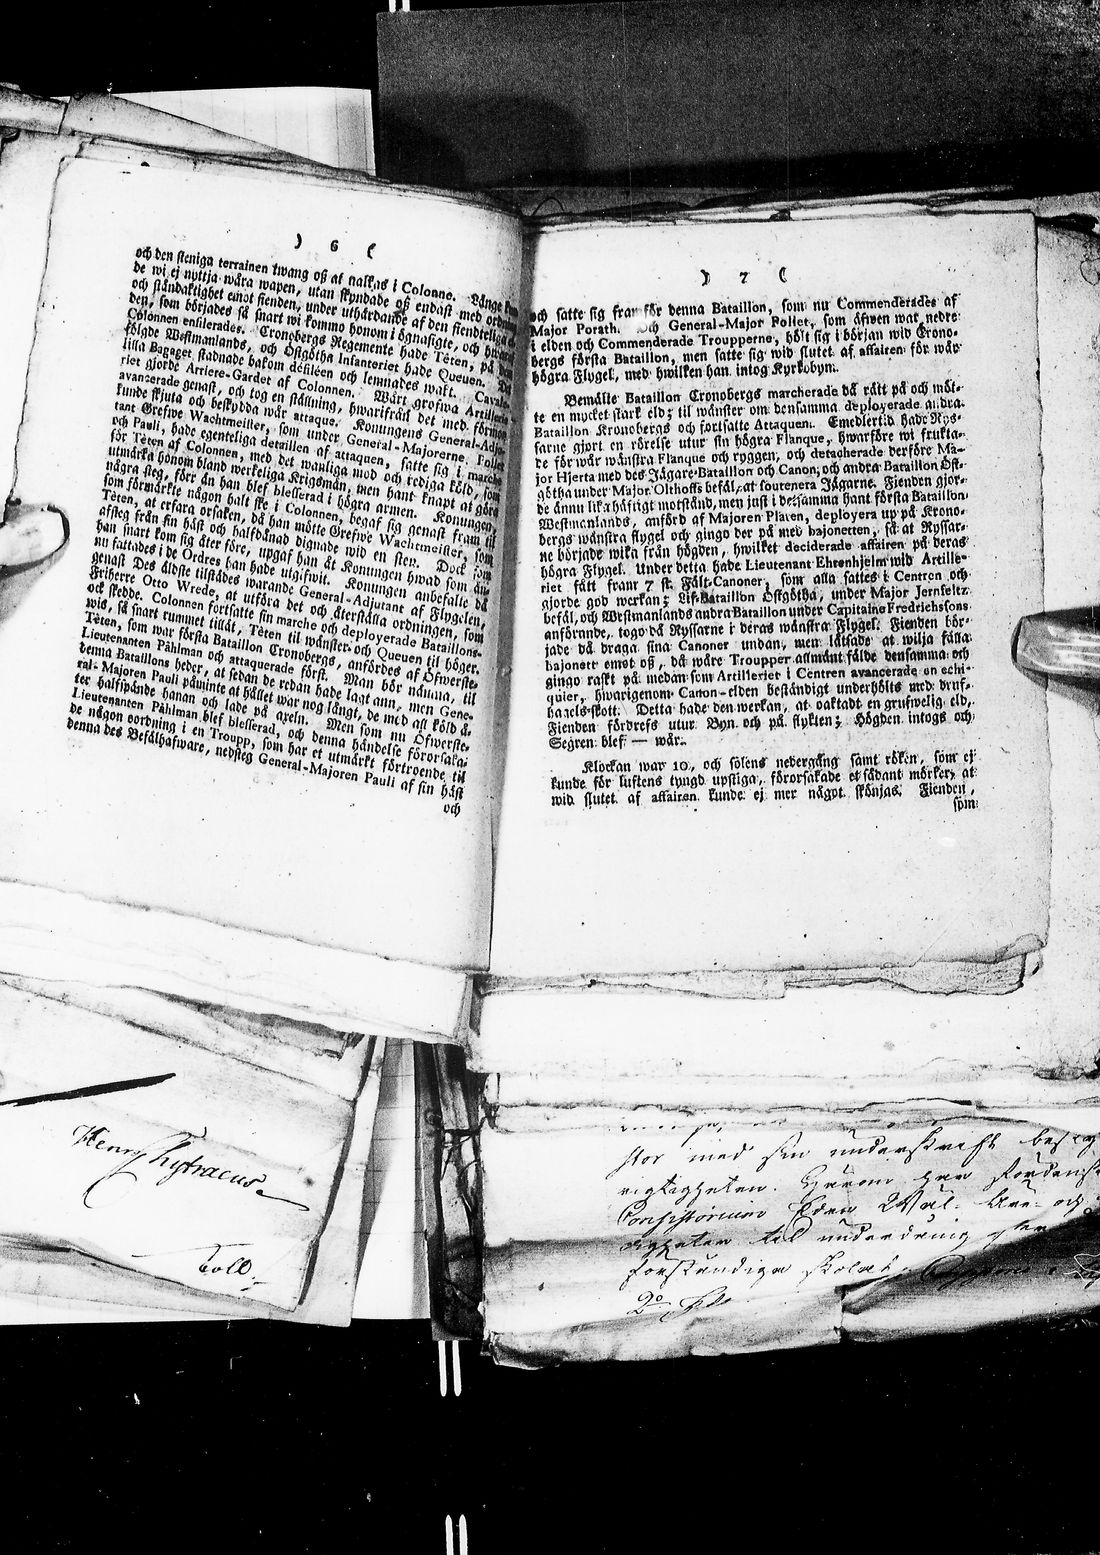 ) 6 (
och den steniga terrainen twang oß at nalkas i Colonne. Länge
de wi ej nyttja wåra wapen, utan skyndade oß endast med ordning
och ståndaktighet emot fienden, under uthärdande af den fiendteliga
den, som börjades så snart wi kommo honom i ögnasigte, och hwaraf
Colonnen enfilerades. Cronobergs Regemente hade Têten, på hwilket
fölgde Westmanlands, och Östgötha Infanteriet hade Queuen. Det
lilla Bagaget stadnade bakom défiléen och lemnades wakt. Cavale-
riet gjorde Arriere-Gardet af Colonnen. Wårt grofwa Artilleri
avancerade genast, och tog en ställning, hwarifrån det med förmon
kunde skjuta och beskydda wår attaque. Konungens General-Adju-
tant Grefwe Wachtmeister, som under General-Majorerne Pollet
och Pauli, hade egenteliga detaillen af attaquen, satte sig i marche
för Têten af Colonnen, med det wanliga mod och rediga köld, som
utmärka honom bland werkeliga Krigsmän, men hant knapt at göra
några steg, förr än han blef blesserad i högra armen. Konungen,
som förmärkte någon halt ske i Colonnen, begaf sig genast fram til
Têten, at erfara orsaken, då han mötte Grefwe Wachtmeister, som
afsteg från sin häst och halfdånad dignade wid en sten. Dock som
han snart kom sig åter före, upgaf han åt Konungen hwad som än-
nu fattades i de Ordres han hade utgifwit. Konungen anbefalte då
genast Des äldste tilstädes warande General-Adjutant af Flygelen,
Friherre Otto Wrede, at utföra det och återställa ordningen, som
ock skedde. Colonnen fortsatte sin marche och deployerade Bataillons-
wis, så snart rummet tillåt, Têten til wänster och Queuen til höger.
Têten, som war första Bataillon Cronobergs, anfördes af Öfwerste-
Lieutenanten Påhlman och attaquerade först. Man bör nämna, til
denna Bataillons heder, at sedan de redan hade lagt ann, men Gene-
ral-Majoren Pauli påminte at hållet war nog långt, de med all köld å-
ter halfspände hanan och lade på axeln. Men som nu Öfwerste-
Lieutenanten Påhlman blef blesserad, och denna händelse förorsaka-
de någon oordning i en Troupp, som har et utmärkt förtroende til
denna des Befälhafware, nedsteg General-Majoren Pauli af sin häst
och
) 7 (
och satte sig framför denna Bataillon, som nu Commenderades af
Major Porath. Och General-Major Pollet, som äfwen war nedre
i elden och Commenderade Troupperne, hölt sig i början wid Crono-
bergs första Bataillon, men satte sig wid slutet af affairen för wår
högra Flygel, med hwilken han intog Kyrkobyn.
Bemälte Bataillon Cronobergs marcherade då rätt på och möt-
te en mycket stark eld; til wänster om densamma deployerade andra
Bataillon Kronobergs och fortsatte Attaquen. Emedlertid hade Rys-
sarne gjort en rörelse utur sin högra Flanque, hwarföre wi frukta-
de för wår wänstra Flanque och ryggen, och detacherade derföre Ma-
jor Hjerta med des Jägare-Bataillon och Canon; och andra Bataillon Öst-
götha under Major Olthoffs befäl, at soutenera Jägarne. Fienden gjor-
de ännu lika häftigt motstånd, men just i detsamma hant första Bataillon
Westmanlands, anförd af Majoren Platen, deployera up på Krono-
bergs wänstra flygel och gingo der på med bajonetten, så at Ryssar-
ne började wika från högden, hwilket deciderade affairen på deras
högra Flygel. Under detta hade Lieutenant Ehrenhjelm wid Artille-
riet fått fram 7 st. Fält-Canoner, som alla sattes i Centren och
gjorde god werkan; Lif-Bataillon Östgötha, under Major Jernfeltz
befäl, och Westmanlands andra Bataillon under Capitaine Fredrichssons
anförande, togo då Ryssarne i deras wänstra Flygel. Fienden bör-
jade då draga sina Canoner undan, men låtsade at wilja fälla
bajonett emot oß, då wåre Troupper allmänt fälde densamma och
gingo raskt på medan som Artilleriet i Centren avancerade en echi-
quier, hwarigenom Canon-elden beständigt underhölts med druf-
hagels-skott. Detta hade den werkan, at oaktadt en grufwelig eld,
Fienden fördrefs utur Byn och på flykten; Högden intogs och
Segren blef — wår.
Klockan war 10, och solens nedergång samt röken, som ej
kunde för luftens tyngd upstiga, förorsakade et sådant mörker, at
wid slutet af affairen kunde ej mer något skönjas. Fienden,
som
Henry Chytraeus.
Toll.
stor med sin underskrift
rigtigheten.
Consistorium
til undandring
förständiga